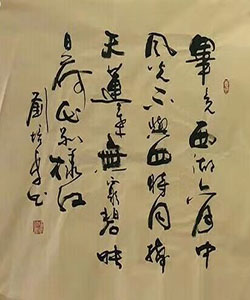 畢竟西湖六月中
風光不與四時同接
天蓮葉無窮碧映
日荷花別樣紅
劉培